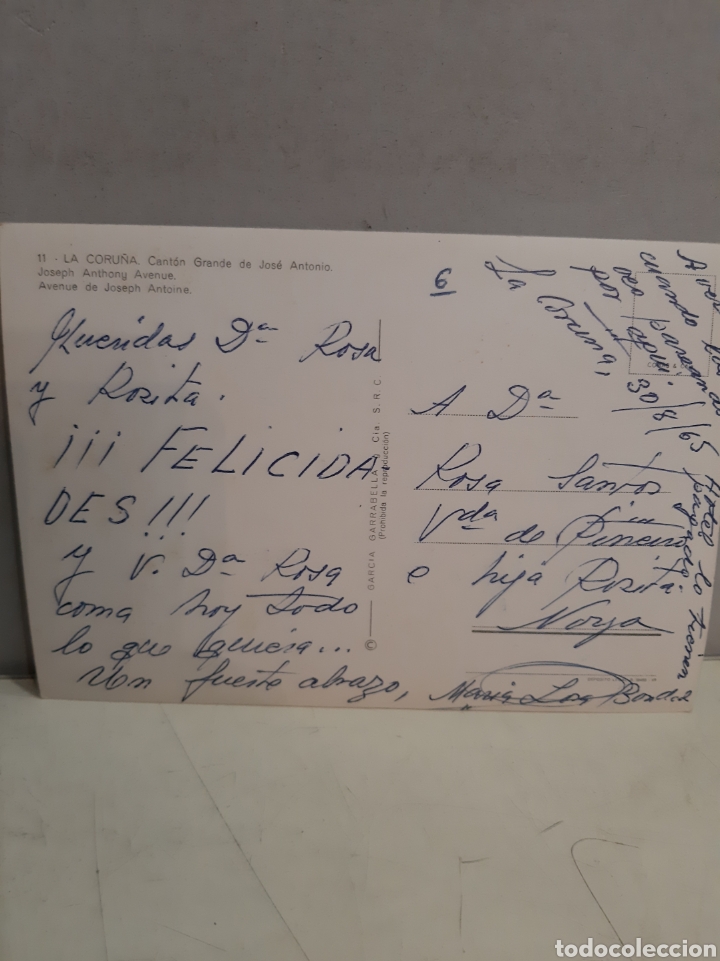 11 - LA CORUÑA. Cantón Grande de José Antonio.
Joseph Anthony Avenue.
Avenue de Joseph Antoine.
Queridas Dª Rosa
y Rosita.
¡¡¡ FELICIDA
DES!!!
y V. Dª Rosa
coma hoy todo
lo que quiera...
Un fuerte abrazo,
GARCIA GARRABELLA Cia. S.R.C.
(Prohibida la reproducción)
6
La Coruña,
30/8/65
A ver
cuando las
veo paseando
por aquí
Hotel lo tienen
A Dª
Rosa Santos
Vda de Piñeiro
e hija Rosita.
Noya
Maria Luz
todocoleccion